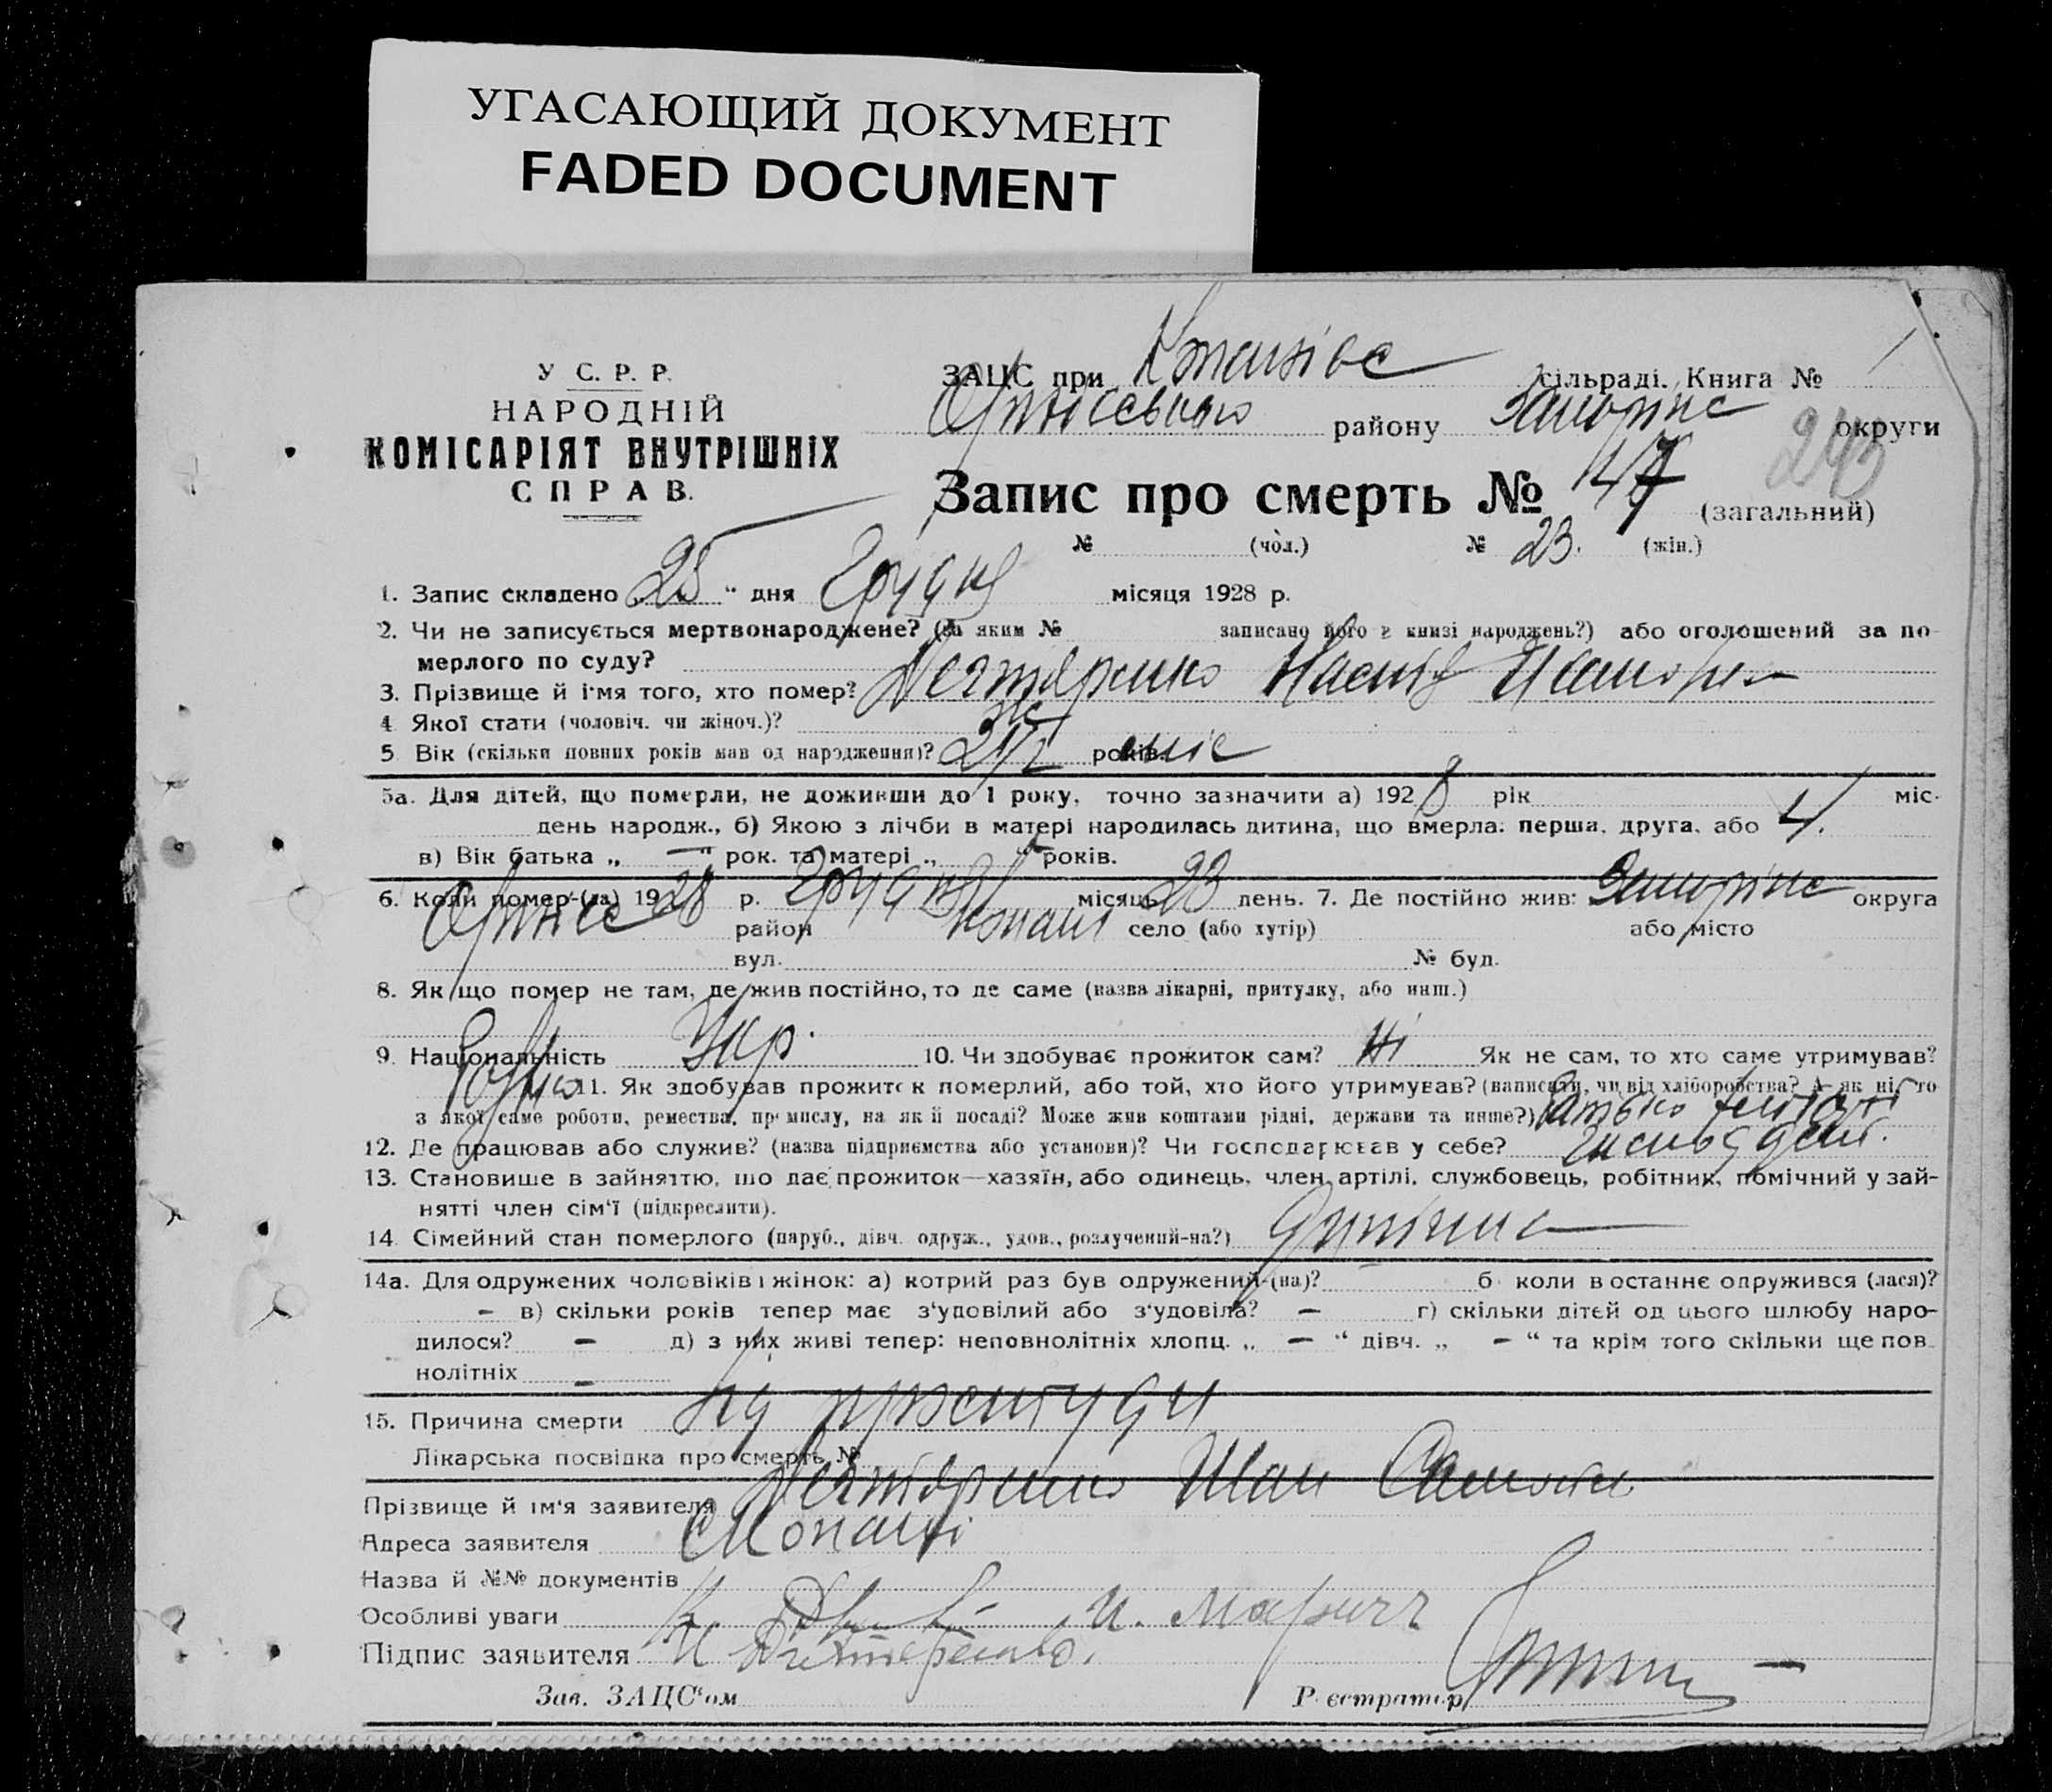 УГАСАЮЩИЙ ДОКУМЕНТ
FADED DOCUMENT
У С. Р. Р.
НАРОДНІЙ
КОМІСАРІЯТ ВНУТРІШНІХ
СПРАВ.
ЗАЦС при сільраді. Книга № 1
району Запоріж округи
Запис про смерть № 47 (загальний)
243
№ (чол.) № 23. (жін.)
1. Запис складено „ 25 “ дня Грудня місяця 1928 р.
2. Чи не записується мертвонароджене? (За яким № записано його в книзі народжень?) або оголошений за по-
мерлого по суду?
3. Прізвище й ім'я того, хто помер?
4 Якої стати (чоловіч. чи жіноч.)? Ж
5 Вік (скільки повних років мав од народження)? років.
5а. Для дітей, що померли, не доживши до 1 року, точно зазначити а) 1928 рік міс.
день народж., б) Якою з лічби в матері народилась дитина, що вмерла: перша, друга, або 4.
в) Вік батька „ — “ рок. та матері „ “ років.
6. Коли помер-(ла) 1928 р. Грудня місяць 23 день. 7. Де постійно жив: Запоріж округа
район Копані село (або хутір) або місто
вул. № буд.
8. Якщо помер не там, де жив постійно, то де саме (назва лікарні, притулку, або инш.)
9. Національність Укр. 10. Чи здобуває прожиток сам? Ні Як не сам, то хто саме утримував?
11. Як здобував прожиток померлий, або той, хто його утримував? (написати, чи від хліборобства? А як ні, то
з якої саме роботи, ремества, промислу, на якій посаді? Може жив коштами рідні, держави та инше?) Батько
12. Де працював або служив? (назва підприємства або установи)? Чи господарював у себе?
13. Становище в зайняттю, що дає прожиток—хазяїн, або одинець, член артілі, службовець, робітник, помічний у зай-
нятті член сім'ї (підкреслити).
14 Сімейний стан померлого (паруб., дівч. одруж., удов., розлучений-на?) дитина
14а. Для одружених чоловіків і жінок: а) котрий раз був одружений-(на)? б коли востаннє одружився (лася)?
– в) скільки років тепер має з'удовілий або з'удовіла? – г) скільки дітей од цього шлюбу наро-
дилося? – д) з них живі тепер: неповнолітніх хлопц. „ – “ дівч. „ – “ та крім того скільки ще пов-
нолітніх –
15. Причина смерти Від простуди
Лікарська посвідка про смерть №
Прізвище й ім'я заявителя Іван
Адреса заявителя с Копані
Назва й №№ документів
Особливі уваги
Підпис заявителя
Зав. ЗАЦС'ом Реєстратор